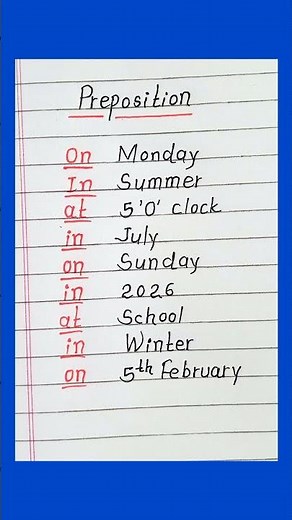 Preposition
On Monday
In Summer
at 5'O' clock
in July
on Sunday
in 2026
at School
in Winter
on 5th February